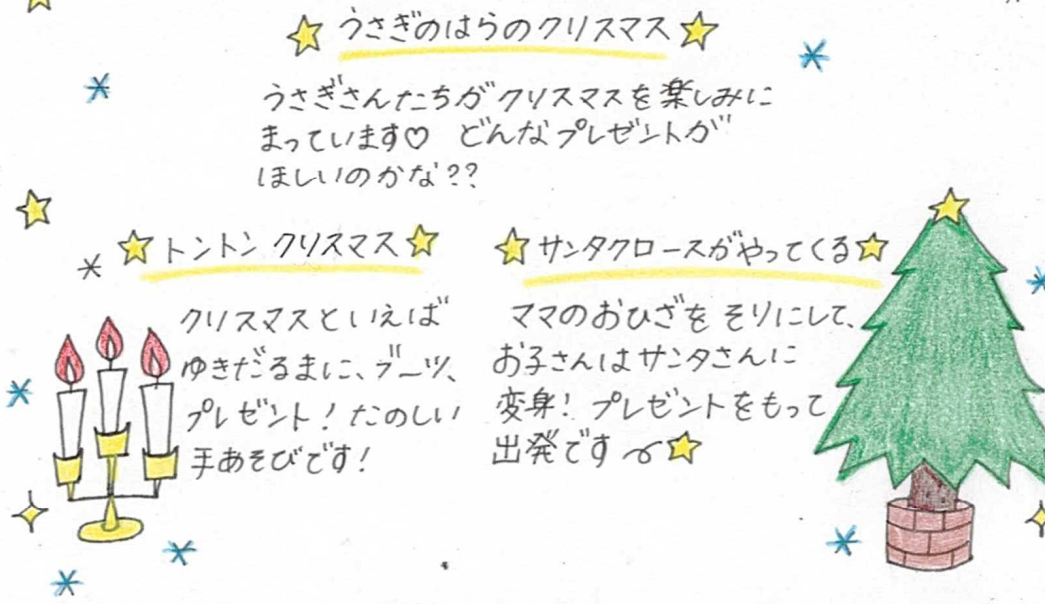 うさぎのはらのクリスマス
うさぎさんたちがクリスマスを楽しみに
まっています♡ どんなプレゼントが
ほしいのかな??
トントン クリスマス
クリスマスといえば
ゆきだるまに、ブーツ、
プレゼント!たのしい
手あそびです!
サンタクロースがやってくる
ママのおひざを そりにして、
お子さんはサンタさんに
変身! プレゼントをもって
出発です